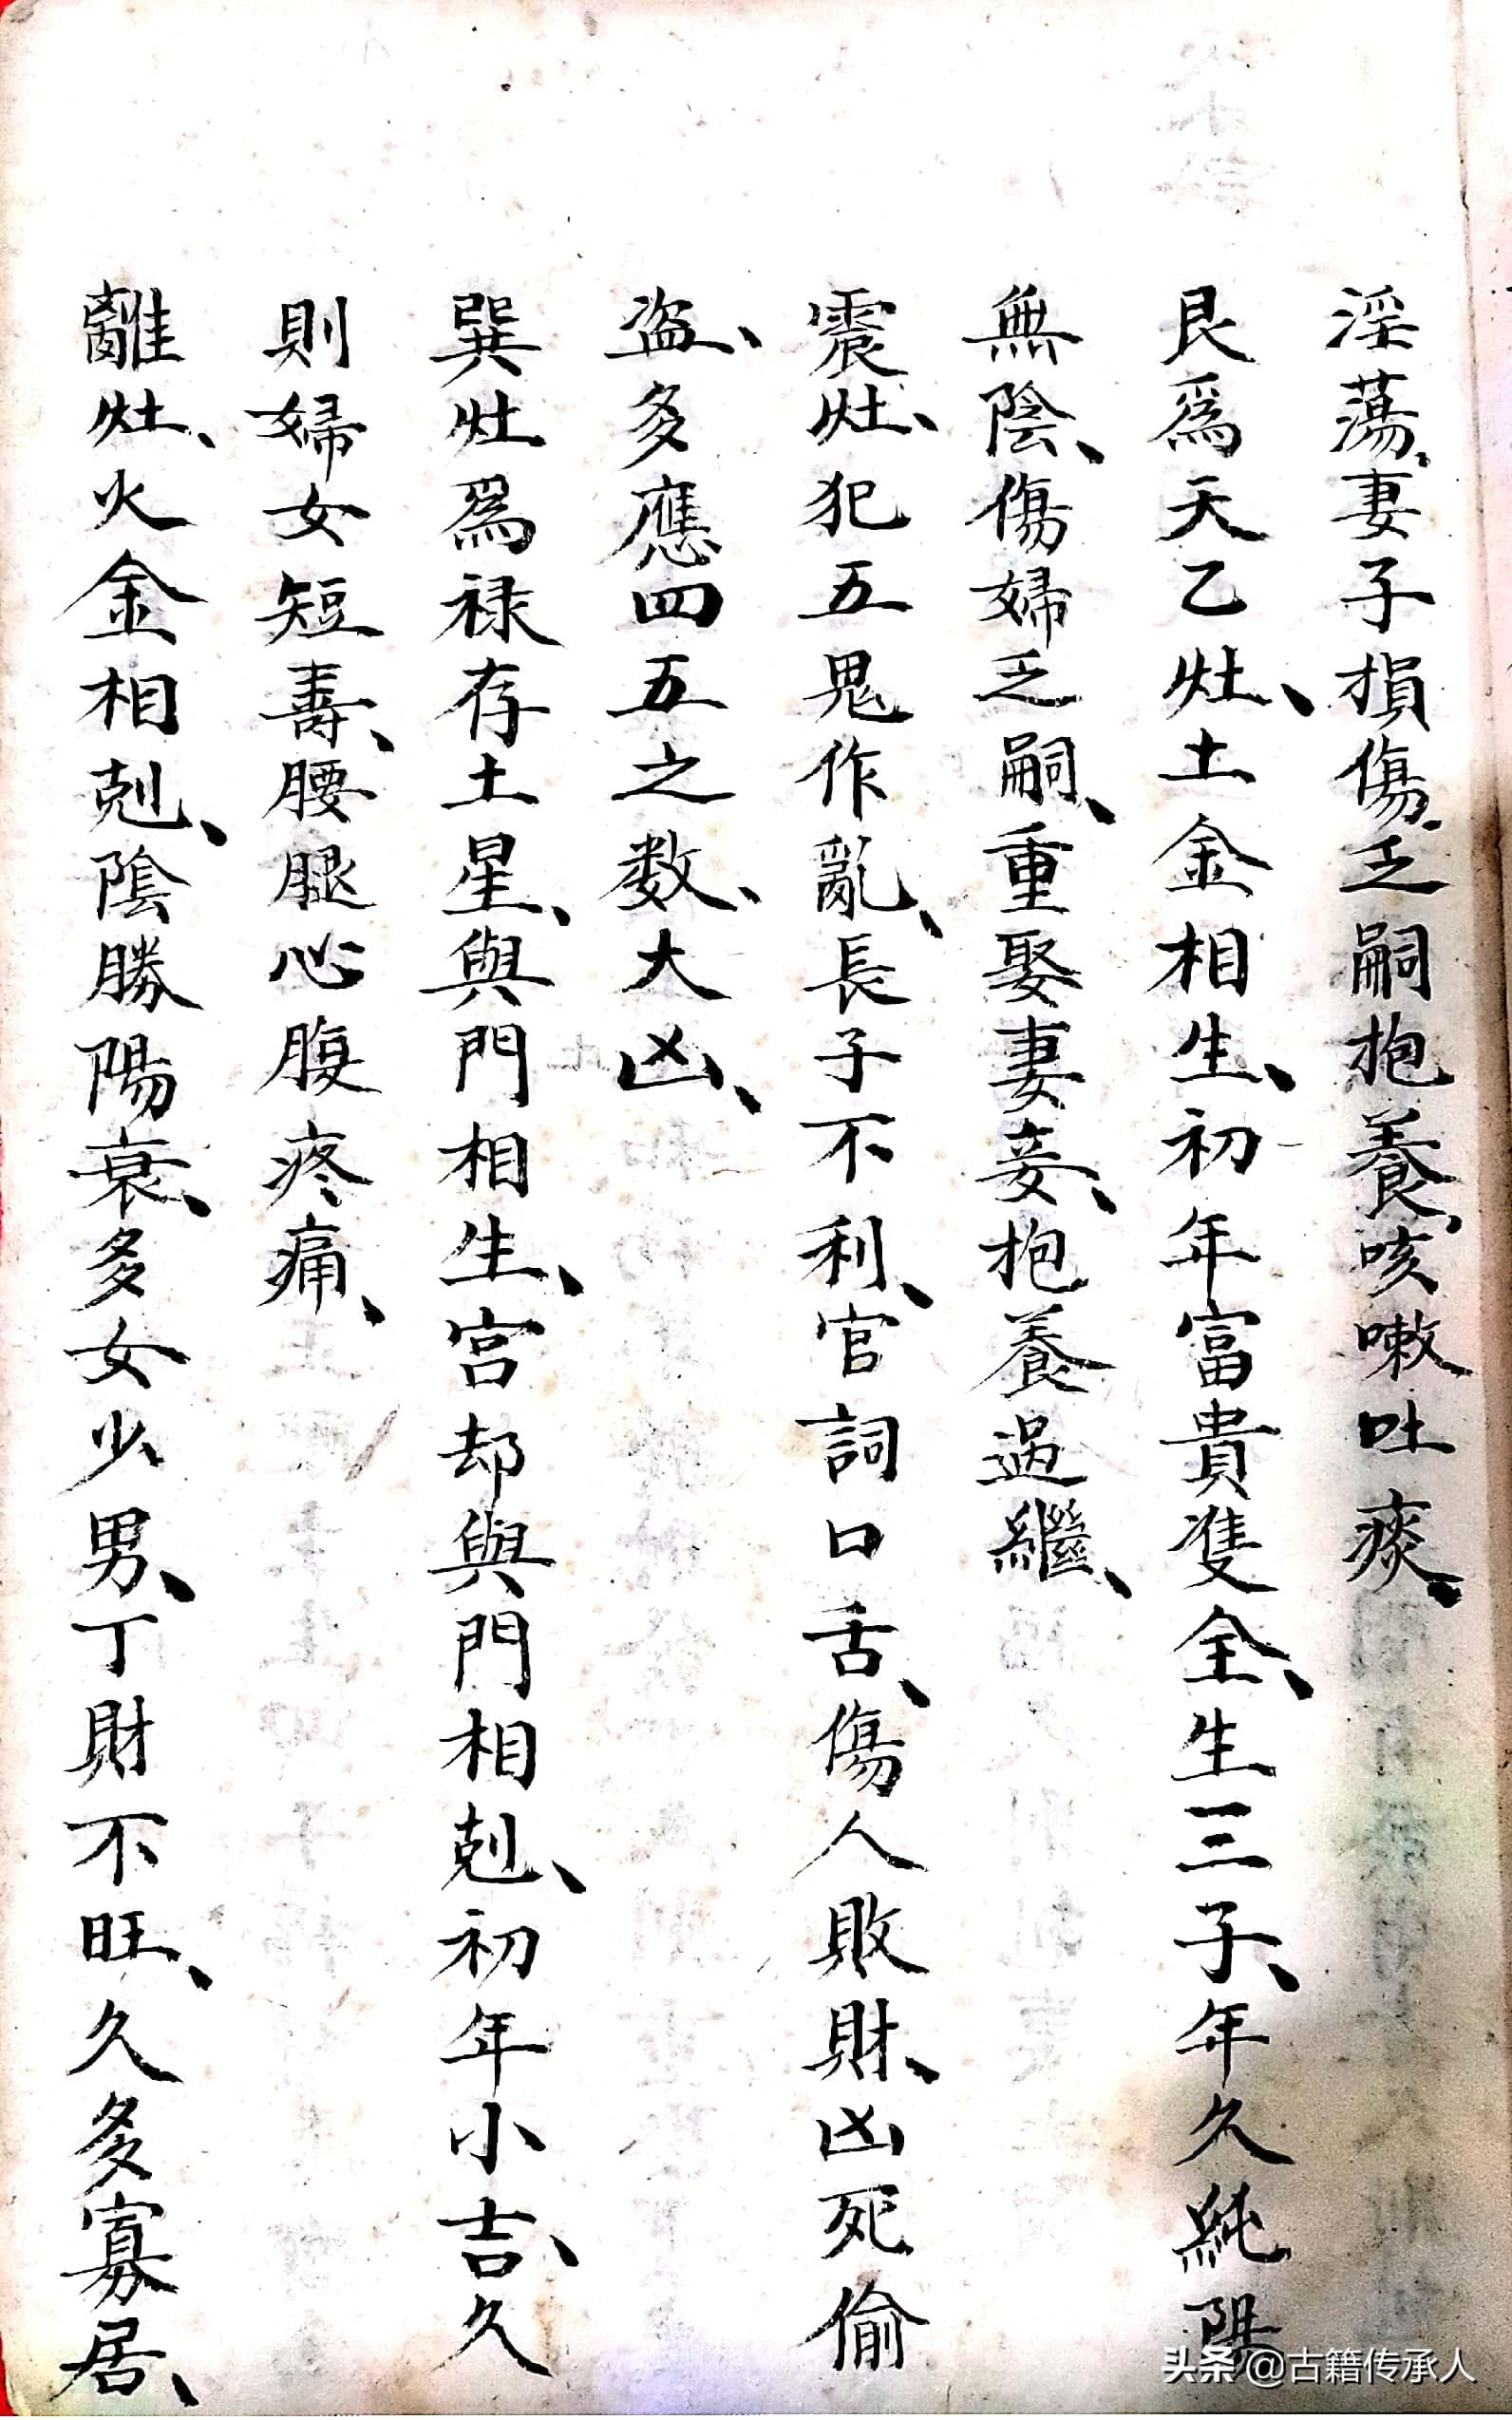 淫蕩、妻子損傷、乏嗣抱養、咳嗽吐痰、
艮爲天乙灶、土金相生、初年富貴隻全、生三子、年久純陽
無陰、傷婦乏嗣、重娶妻妾、抱養過繼、
震灶、犯五鬼作亂、長子不利、官詞口舌、傷人敗財、凶死偷
盗、多應四五之数、大凶、
巽灶爲禄存土星、與門相生、宫却與門相剋、初年小吉、久
則婦女短壽、腰腿心腹疼痛、
離灶、火金相剋、陰勝陽衰、多女少男、丁財不旺、久多寡居、
头条 @古籍传承人